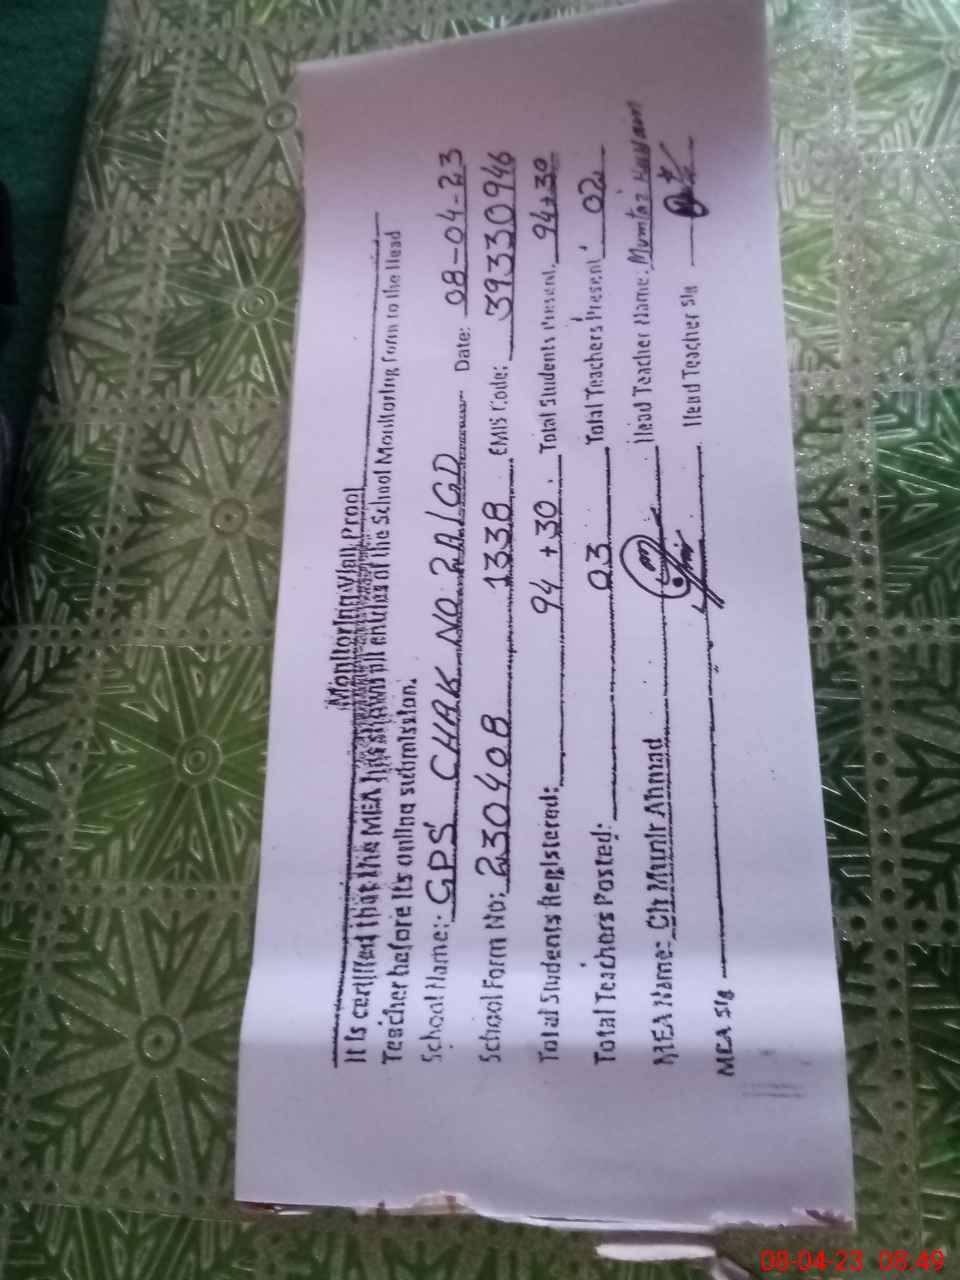 Monitoring Visit Proof
It is certified that the MEA has shown all entries of the School Monitoring Form to the Head
Teacher before its online submission.
School Name: GPS CHAK NO. 2A/GD Date: 08-04-23
School Form No: 230408 1338 EMIS Code: 39330946
Total Students Registered: 94 + 30. Total Students Present. 94+30
Total Teachers Posted: 03 Total Teachers Present 02
MEA Name: Ch Munir Ahmad Head Teacher Name: Mumtaz Hussain
MEA Sig Head Teacher Sig
08-04-23 08:49